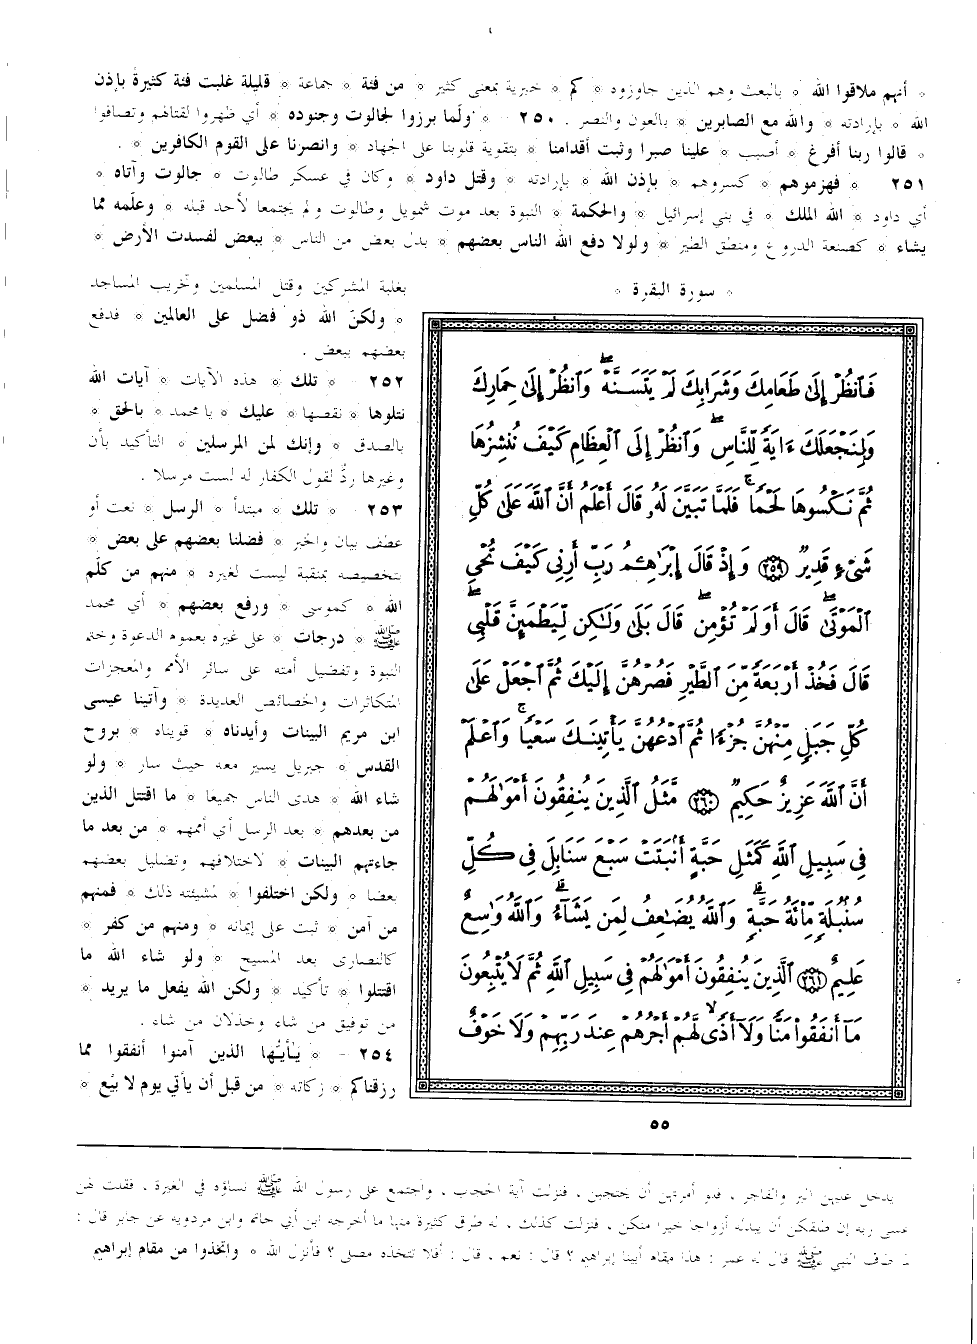 * أنهم ملاقوا الله * بالبعث وهم الذين جاوزوه * كم * خبرية بمعنى كثير * من فئة * جماعة * قليلة غلبت فئة كثيرة بإذن
الله * بإرادته * والله مع الصابرين * بالعون والنصر . ٢٥٠ - * ولما برزوا لجالوت وجنوده * أي ظهروا لقتالهم وتصافوا
* قالوا ربنا أفرغ * أصبب * علينا صبرا وثبت أقدامنا * بتقوية قلوبنا على الجهاد * وانصرنا على القوم الكافرين * .
٢٥١ * فهزموهم * كسروهم * بإذن الله * بإرادته * وقتل داود * وكان في عسكر طالوت * جالوت وآتاه *
أي داود * الله الملك * في بني إسرائيل * والحكمة * النبوة بعد موت شمويل وطالوت ولم يجتمعا لأحد قبله * وعلمه مما
يشاء * كصنعة الدروع ومنطق الطير * ولولا دفع الله الناس بعضهم * بدل بعض من الناس * ببعض لفسدت الأرض *
* سورة البقرة *
فَٱنظُرْ إِلَىٰ طَعَامِكَ وَشَرَابِكَ لَمْ يَتَسَنَّهْ ۖ وَٱنظُرْ إِلَىٰ حِمَارِكَ
وَلِنَجْعَلَكَ ءَايَةً لِّلنَّاسِ ۖ وَٱنظُرْ إِلَى ٱلْعِظَامِ كَيْفَ نُنشِزُهَا
ثُمَّ نَكْسُوهَا لَحْمًا ۚ فَلَمَّا تَبَيَّنَ لَهُۥ قَالَ أَعْلَمُ أَنَّ ٱللَّهَ عَلَىٰ كُلِّ
شَىْءٍ قَدِيرٌ ٢٥٩ وَإِذْ قَالَ إِبْرَٰهِـۧمُ رَبِّ أَرِنِى كَيْفَ تُحْىِ
ٱلْمَوْتَىٰ ۖ قَالَ أَوَلَمْ تُؤْمِن ۖ قَالَ بَلَىٰ وَلَـٰكِن لِّيَطْمَئِنَّ قَلْبِى ۖ
قَالَ فَخُذْ أَرْبَعَةً مِّنَ ٱلطَّيْرِ فَصُرْهُنَّ إِلَيْكَ ثُمَّ ٱجْعَلْ عَلَىٰ
كُلِّ جَبَلٍ مِّنْهُنَّ جُزْءًا ثُمَّ ٱدْعُهُنَّ يَأْتِينَكَ سَعْيًا ۚ وَٱعْلَمْ
أَنَّ ٱللَّهَ عَزِيزٌ حَكِيمٌ ٢٦٠ مَّثَلُ ٱلَّذِينَ يُنفِقُونَ أَمْوَٰلَهُمْ
فِى سَبِيلِ ٱللَّهِ كَمَثَلِ حَبَّةٍ أَنۢبَتَتْ سَبْعَ سَنَابِلَ فِى كُلِّ
سُنۢبُلَةٍ مِّا۟ئَةُ حَبَّةٍ ۗ وَٱللَّهُ يُضَـٰعِفُ لِمَن يَشَآءُ ۗ وَٱللَّهُ وَٰسِعٌ
عَلِيمٌ ٢٦١ ٱلَّذِينَ يُنفِقُونَ أَمْوَٰلَهُمْ فِى سَبِيلِ ٱللَّهِ ثُمَّ لَا يُتْبِعُونَ
مَآ أَنفَقُوا۟ مَنًّا وَلَآ أَذًى ۙ لَّهُمْ أَجْرُهُمْ عِندَ رَبِّهِمْ وَلَا خَوْفٌ
بغلبة المشركين وقتل المسلمين وتخريب المساجد
* ولكن الله ذو فضل على العالمين * فدفع
بعضهم ببعض .
٢٥٢ - * تلك * هذه الآيات * آيات الله
نتلوها * نقصها * عليك * يا محمد * بالحق *
بالصدق * وإنك لمن المرسلين * التأكيد بأن
وغيرها ردٌّ لقول الكفار له لست مرسلا .
٢٥٣ - * تلك * مبتدأ * الرسل * نعت أو
عطف بيان والخبر * فضلنا بعضهم على بعض *
بتخصيصه بمنقبة ليست لغيره * منهم من كلّم
الله * كموسى * ورفع بعضهم * أي محمد
ﷺ * درجات * على غيره بعموم الدعوة وختم
النبوة وتفضيل أمته على سائر الأمم والمعجزات
المتكاثرات والخصائص العديدة * وآتينا عيسى
ابن مريم البينات وأيدناه * قويناه * بروح
القدس * جبريل يسير معه حيث سار * ولو
شاء الله * هدى الناس جميعا * ما اقتتل الذين
من بعدهم * بعد الرسل أي أممهم * من بعد ما
جاءتهم البينات * لاختلافهم وتضليل بعضهم
بعضا * ولكن اختلفوا * لمشيئته ذلك * فمنهم
من آمن * ثبت على إيمانه * ومنهم من كفر *
كالنصارى بعد المسيح * ولو شاء الله ما
اقتتلوا * تأكيد * ولكن الله يفعل ما يريد *
من توفيق من شاء وخذلان من شاء .
٢٥٤ - * يأيها الذين آمنوا أنفقوا مما
رزقناكم * زكاته * من قبل أن يأتي يوم لا بيع *
٥٥
يدخل عليهن البر والفاجر ، فلو أمرتهن أن يحتجبن ، فنزلت آية الحجاب ، واجتمع على رسول الله ﷺ نساؤه في الغيرة ، فقلت لهن
عسى ربه إن طلقكن أن يبدله أزواجا خيرا منكن ، فنزلت كذلك ، له طرق كثيرة منها ما أخرجه ابن أبي حاتم وابن مردويه عن جابر قال :
لما طاف النبي ﷺ قال له عمر : هذا مقام أبينا إبراهيم ؟ قال : نعم ، قال : أفلا نتخذه مصلى ؟ فأنزل الله * واتخذوا من مقام إبراهيم